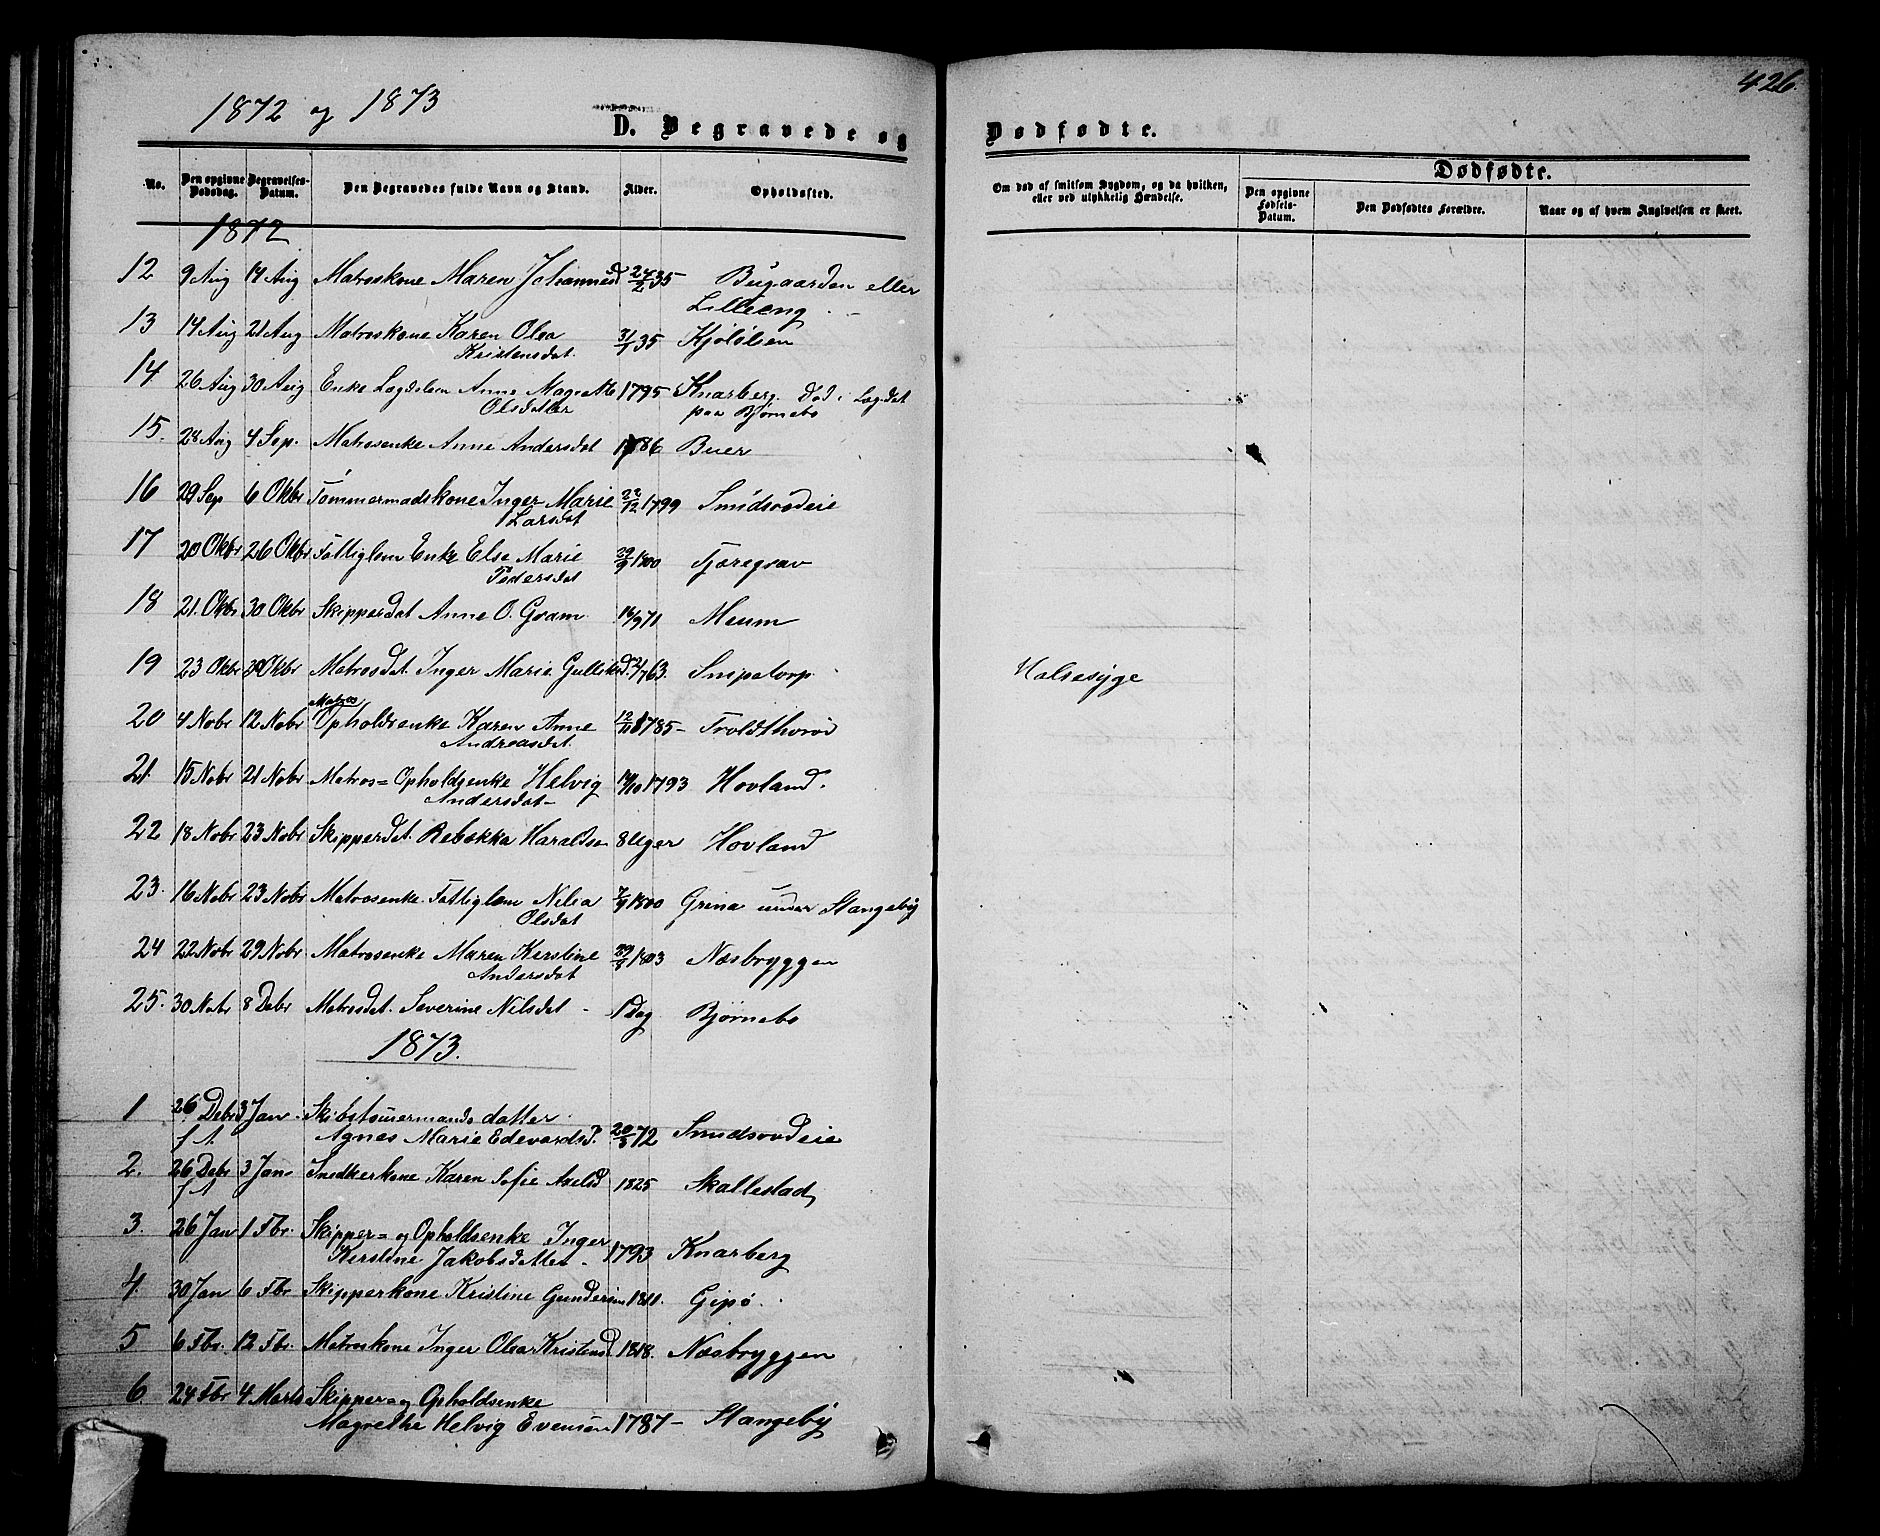 426.
1872 og 1873
D. Begravede og Dødfødte.
No. Den opgivne Dødsdag. Begravelses-Datum. Den Begravedes fulde Navn og Stand. Alder. Opholdssted. Om død af smitsom Sygdom, og da hvilken, eller ved ulykkelig Hændelse. Dødfødte. Den opgivne Fødsels-Datum. Den Dødfødtes Forældre. Naar og af hvem Angivelsen er skeet.
1872
12 9 Aug 14 Aug Matroskone Maren Johannesd 24/2 35 - Bugaarden eller
Lilleeng
13 14 Aug 21 Aug Matroskone Karen Olea 35 Kjolølsen
Kristensdat.
14 26 Aug 30 Aug Enke Lægdslem Anne Magrethe 1795 Knarberg. Død i Lægdet
Olsdatter paa Bjørnebo
15. 28 Aug 4 Sep. Matrosenke Anne Andersdat 1786 Buer
16 29 Sep 6 Oktbr Tømmermadskone Inger Marie 22/12 1799 Smidsrødeie
Larsdat
17 20 Oktbr 26 Oktbr Fattiglem Enke Else Marie 29/9 1800 Tjæregrav
Pedersdat
18 21. Oktbr 30 Oktbr Skipperdat Anne O. Gram 16/9 71 Meum
19 23 Oktbr 30 Oktbr Matrosdat. Inger Marie Gulliksd 63. Snipetorp Halsesyge
20 4 Nobr 12 Nobr Matros Opholdsenke Karen Anne 12/11 1785 - Troldthvrød
Andreasdat.
21. 15 Nobr 21 Nobr Matros= Opholdsenke Helvig 14/10 1793 Hovland.
Andersdat -
22 18 Nobr 23 Nobr Skipperdat. Rebekka Haraldsen 8 Uger Hovland
23. 16 Nobr 23 Nobr Matrosenke. Fattiglem Nilia 7/9 1800 Grina under Stangeby
Olsdat
24 22 Nobr 29 Nobr Matrosenke Maren Kirstine 1803 Næsbryggen
Andersdat
25. 30 Nobr 8 Debr Matrosdat. Severine Nilsdat - 1 Dag Bjørnebo
1873.
1 26 Debr 3 Jan. Skibstømermands datter
f A Agnes Marie Edevardsd. 20/3 72 Smidsrødeie
2. 26 Debr 3 Jan Snedkerkone Karen Sofie Axelsd 1825 Skallestad
f A
3. 26 Jan 1 Fbr. Skipper= og Opholdsenke Inger
Kirstine Jakobsdatter - 1793 Knarberg
4. 30 Jan 6 Fbr Skipperkone Kristine Gundersen 1811. Gipø.
5 6 Fbr. 12 Fbr. Matroskone Inger Olea Kristensd 1818. Næsbryggen
6. 24 Fbr 4 Marts Skipper= og Opholdsenke
Magrethe Helvig Evensen 1787 - Stangeby